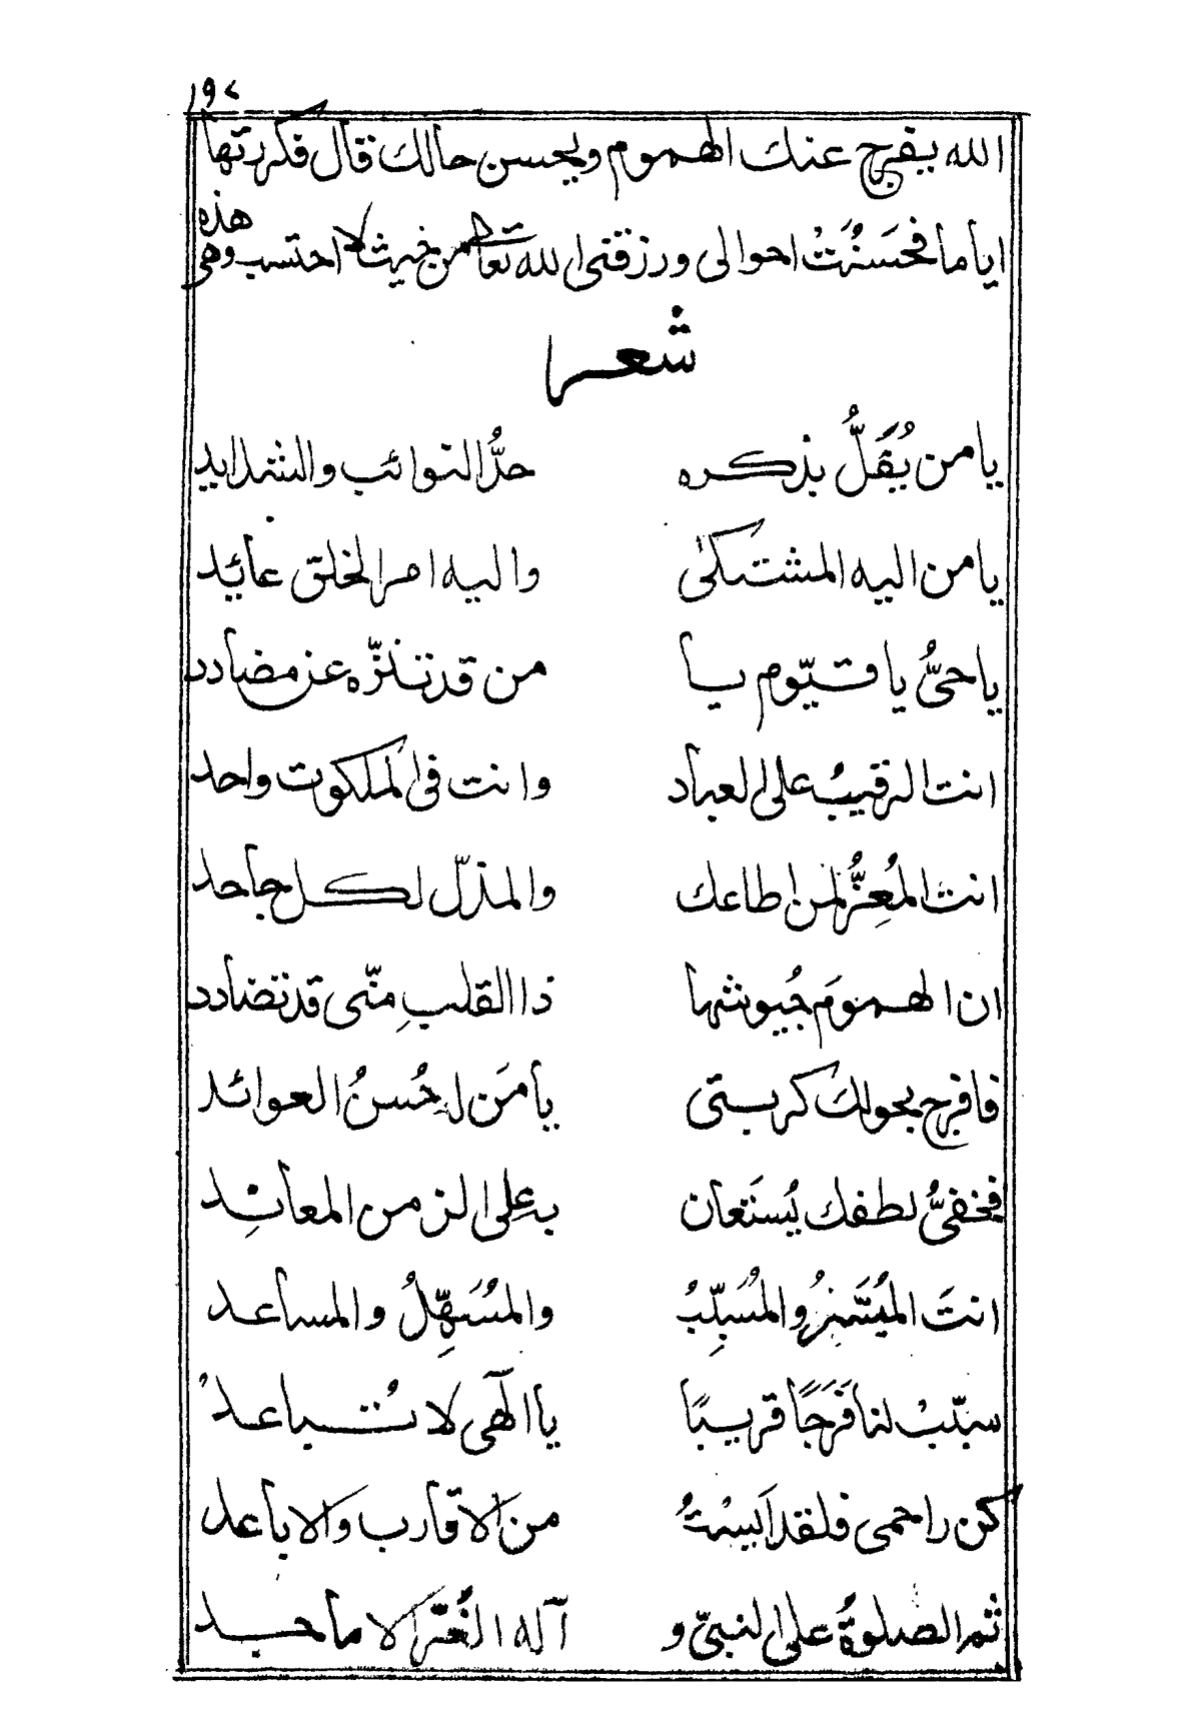 ١٩٢
الله يفرج عنك الهموم ويحسن حالك قال فكررتها
اياما فحَسَنُتَتْ احوالى ورزقنى الله تعالى من حيث لا احتسب وهى هذه
شعرا
يا من يُفَلُّ بذكره حدُّ النوائب والشدايد
يا من اليه المشتكى واليه امر الخلق عائيد
يا حىُّ يا قيّوم يا من قد تنزّه عن مضادد
انت الرقيبُ على العباد وانت فى الملكوت واحد
انت المُعِزُّ لمن اطاعك والمذلّ لكل جاحد
ان الهمومَ جُيوشها ذا القلبِ منّى قد تضادد
فافرج بحولك كربتى يا مَن له حُسنُ العوائد
فخفىُّ لطفك يُستَعان به على الزمن المعانِد
انتَ المُيَسّرُ والمُسَبِّبُ والمُسَهِّلُ والمساعد
سبّبْ لنا فَرَجًا قريبًا يا الٓهى لا تُباعدُ
كن راحمى فلقد اَيِسْتُ من الاقارب والاباعد
ثم الصلوةُ على النبىّ و آله الغُرّ الاماجد